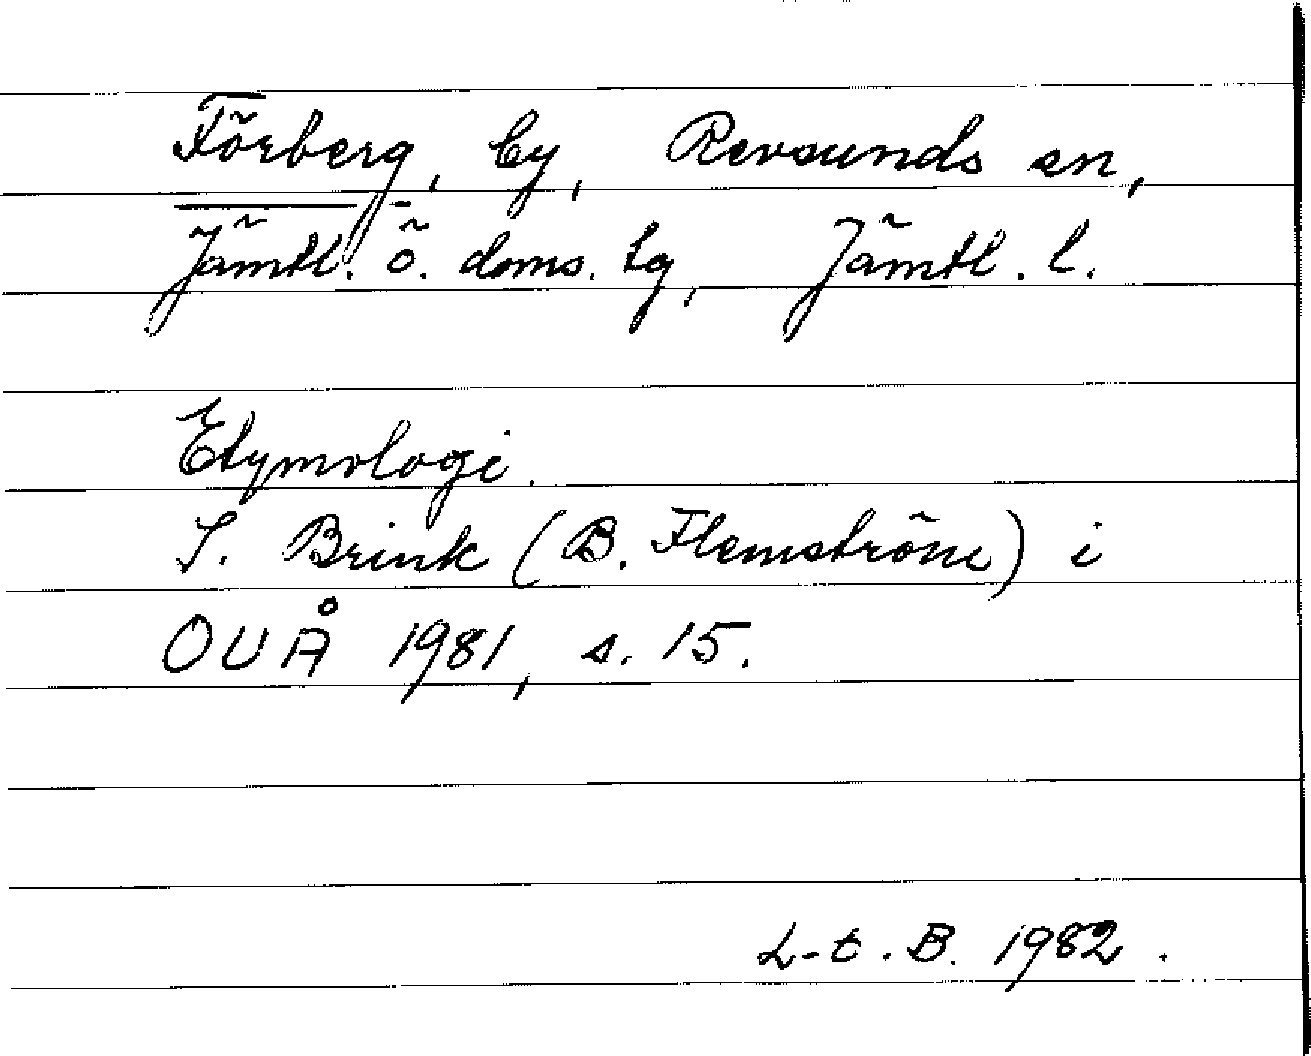 Förberg, by, Revsunds sn,
Jämtl. ö. doms. tg, Jämtl. l.
Etymologi.
S. Brink (B. Flemström) i
OUÅ 1981, s. 15.
L-t. B. 1982.